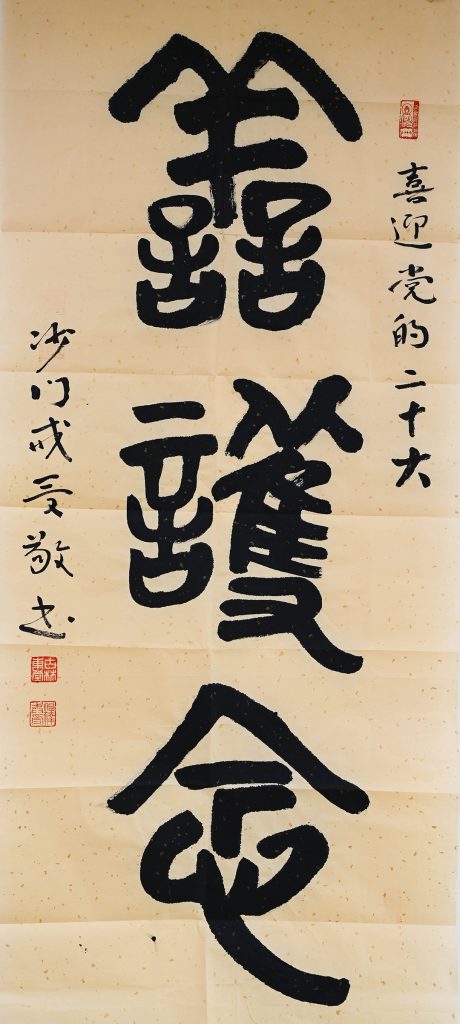 喜迎党的二十大
譱護念
沙门戒受敬书